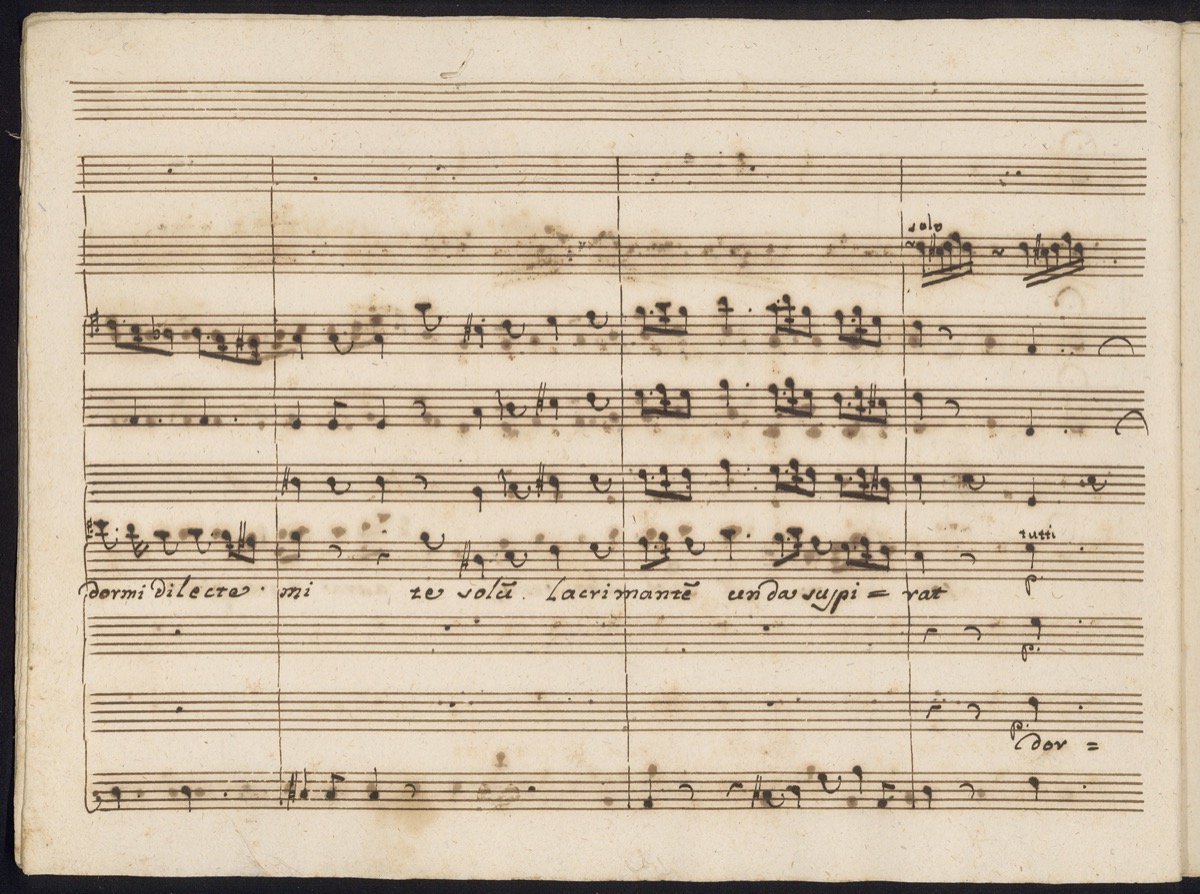 solo
tutti
dormi dilecte mi te solũ lacrimantẽ unda suspi = rat
p.
p.
p.
dor =